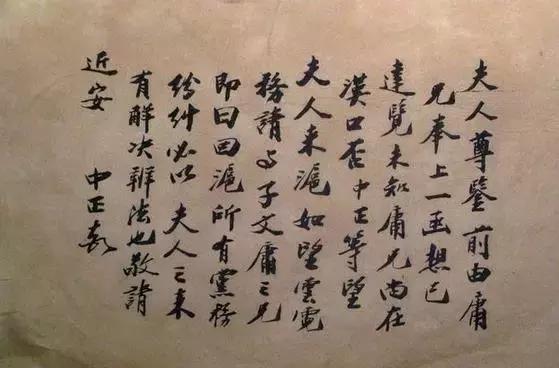 夫人尊鑒前由庸
兄奉上一函想已
達覽未知庸兄尚在
漢口否中正等望
夫人來滬如望雲霓
務請與子文庸之兄
即日回滬所有黨務
紛糾必以夫人之來
有解決辦法也敬請
近安 中正